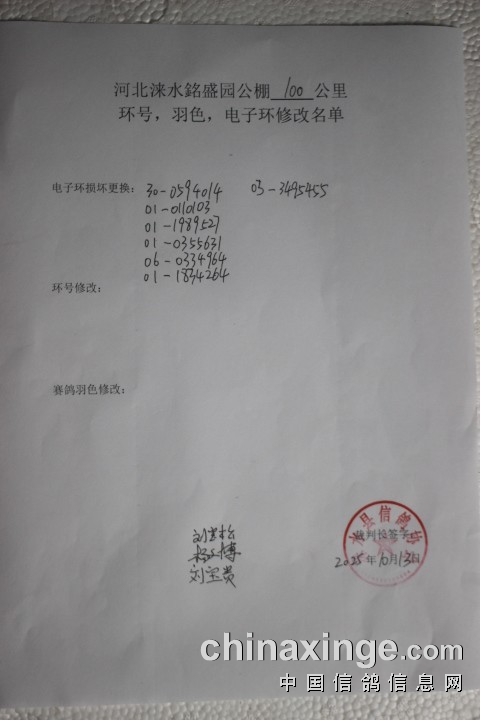 河北涞水銘盛园公棚 100 公里
环号，羽色，电子环修改名单
电子环损坏更换： 30-0594014 03-3495455
01-0110103
01-1989527
01-0355631
06-0334964
01-1834264
环号修改：
赛鸽羽色修改：
县信鸽协
裁判长签字
2025年10月13日
刘宝贵
chinaxinge.com
中国信鸽信息网